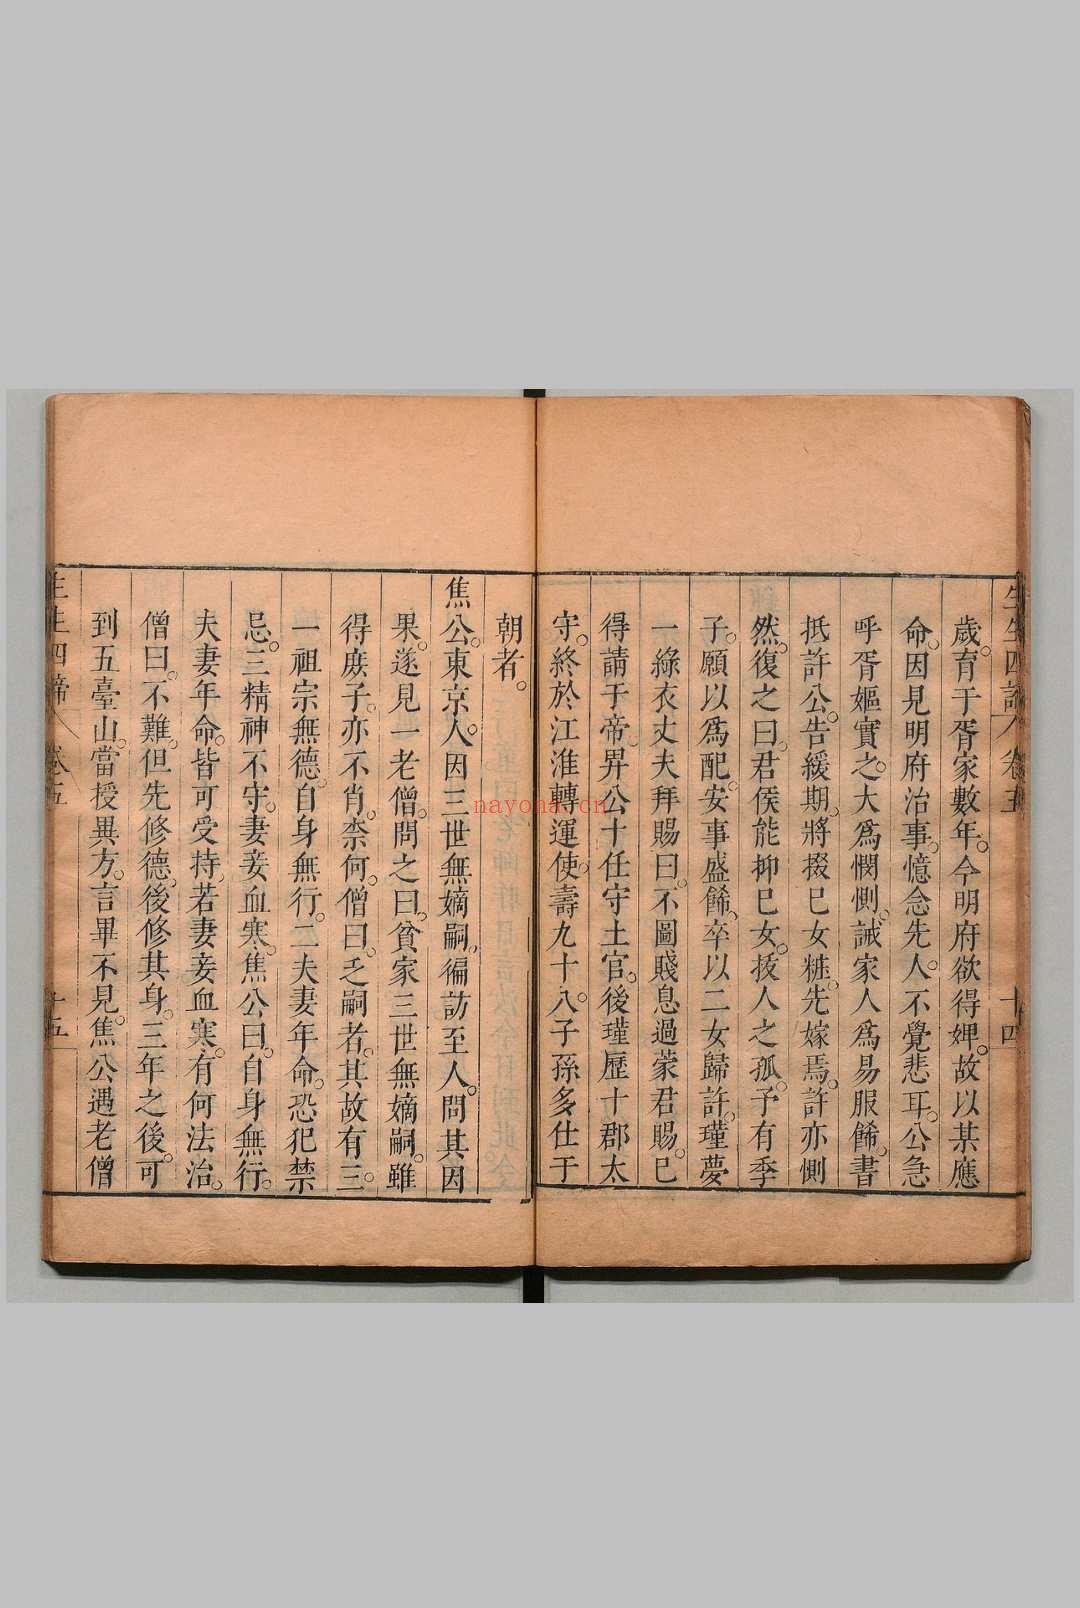 生生四諦 卷五 十四
歲。育于胥家數年。今明府欲得婢。故以某應
命。因見明府治事。憶念先人。不覺悲耳。公急
呼胥嫗實之。大爲憫惻。誡家人爲易服餙。書
抵許公。告緩期。將掇巳女粧。先嫁焉。許亦惻
然。復之曰。君侯能抑巳女。拔人之孤。予有季
子。願以爲配。安事盛餙。卒以二女歸許。瑾夢
一綠衣丈夫拜賜曰。不圖賤息過蒙君賜。巳
得請于帝。昇公十任守土官。後瑾歷十郡太
守。終於江淮轉運使。壽九十八。子孫多仕于
朝者。
焦公。東京人。因三世無嫡嗣。徧訪至人。問其因
果。遂見一老僧。問之曰。貧家三世無嫡嗣。雖
得庶子。亦不肖。柰何。僧曰。乏嗣者。其故有三。
一祖宗無德。自身無行。二夫妻年命。恐犯禁
忌。三精神不守。妻妾血寒。焦公曰。自身無行。
夫妻年命。皆可受持。若妻妾血寒。有何法治。
僧曰。不難。但先修德。後修其身。三年之後。可
到五臺山。當授異方。言畢不見。焦公遇老僧
生生四諦 卷五 十五
nayona.cn